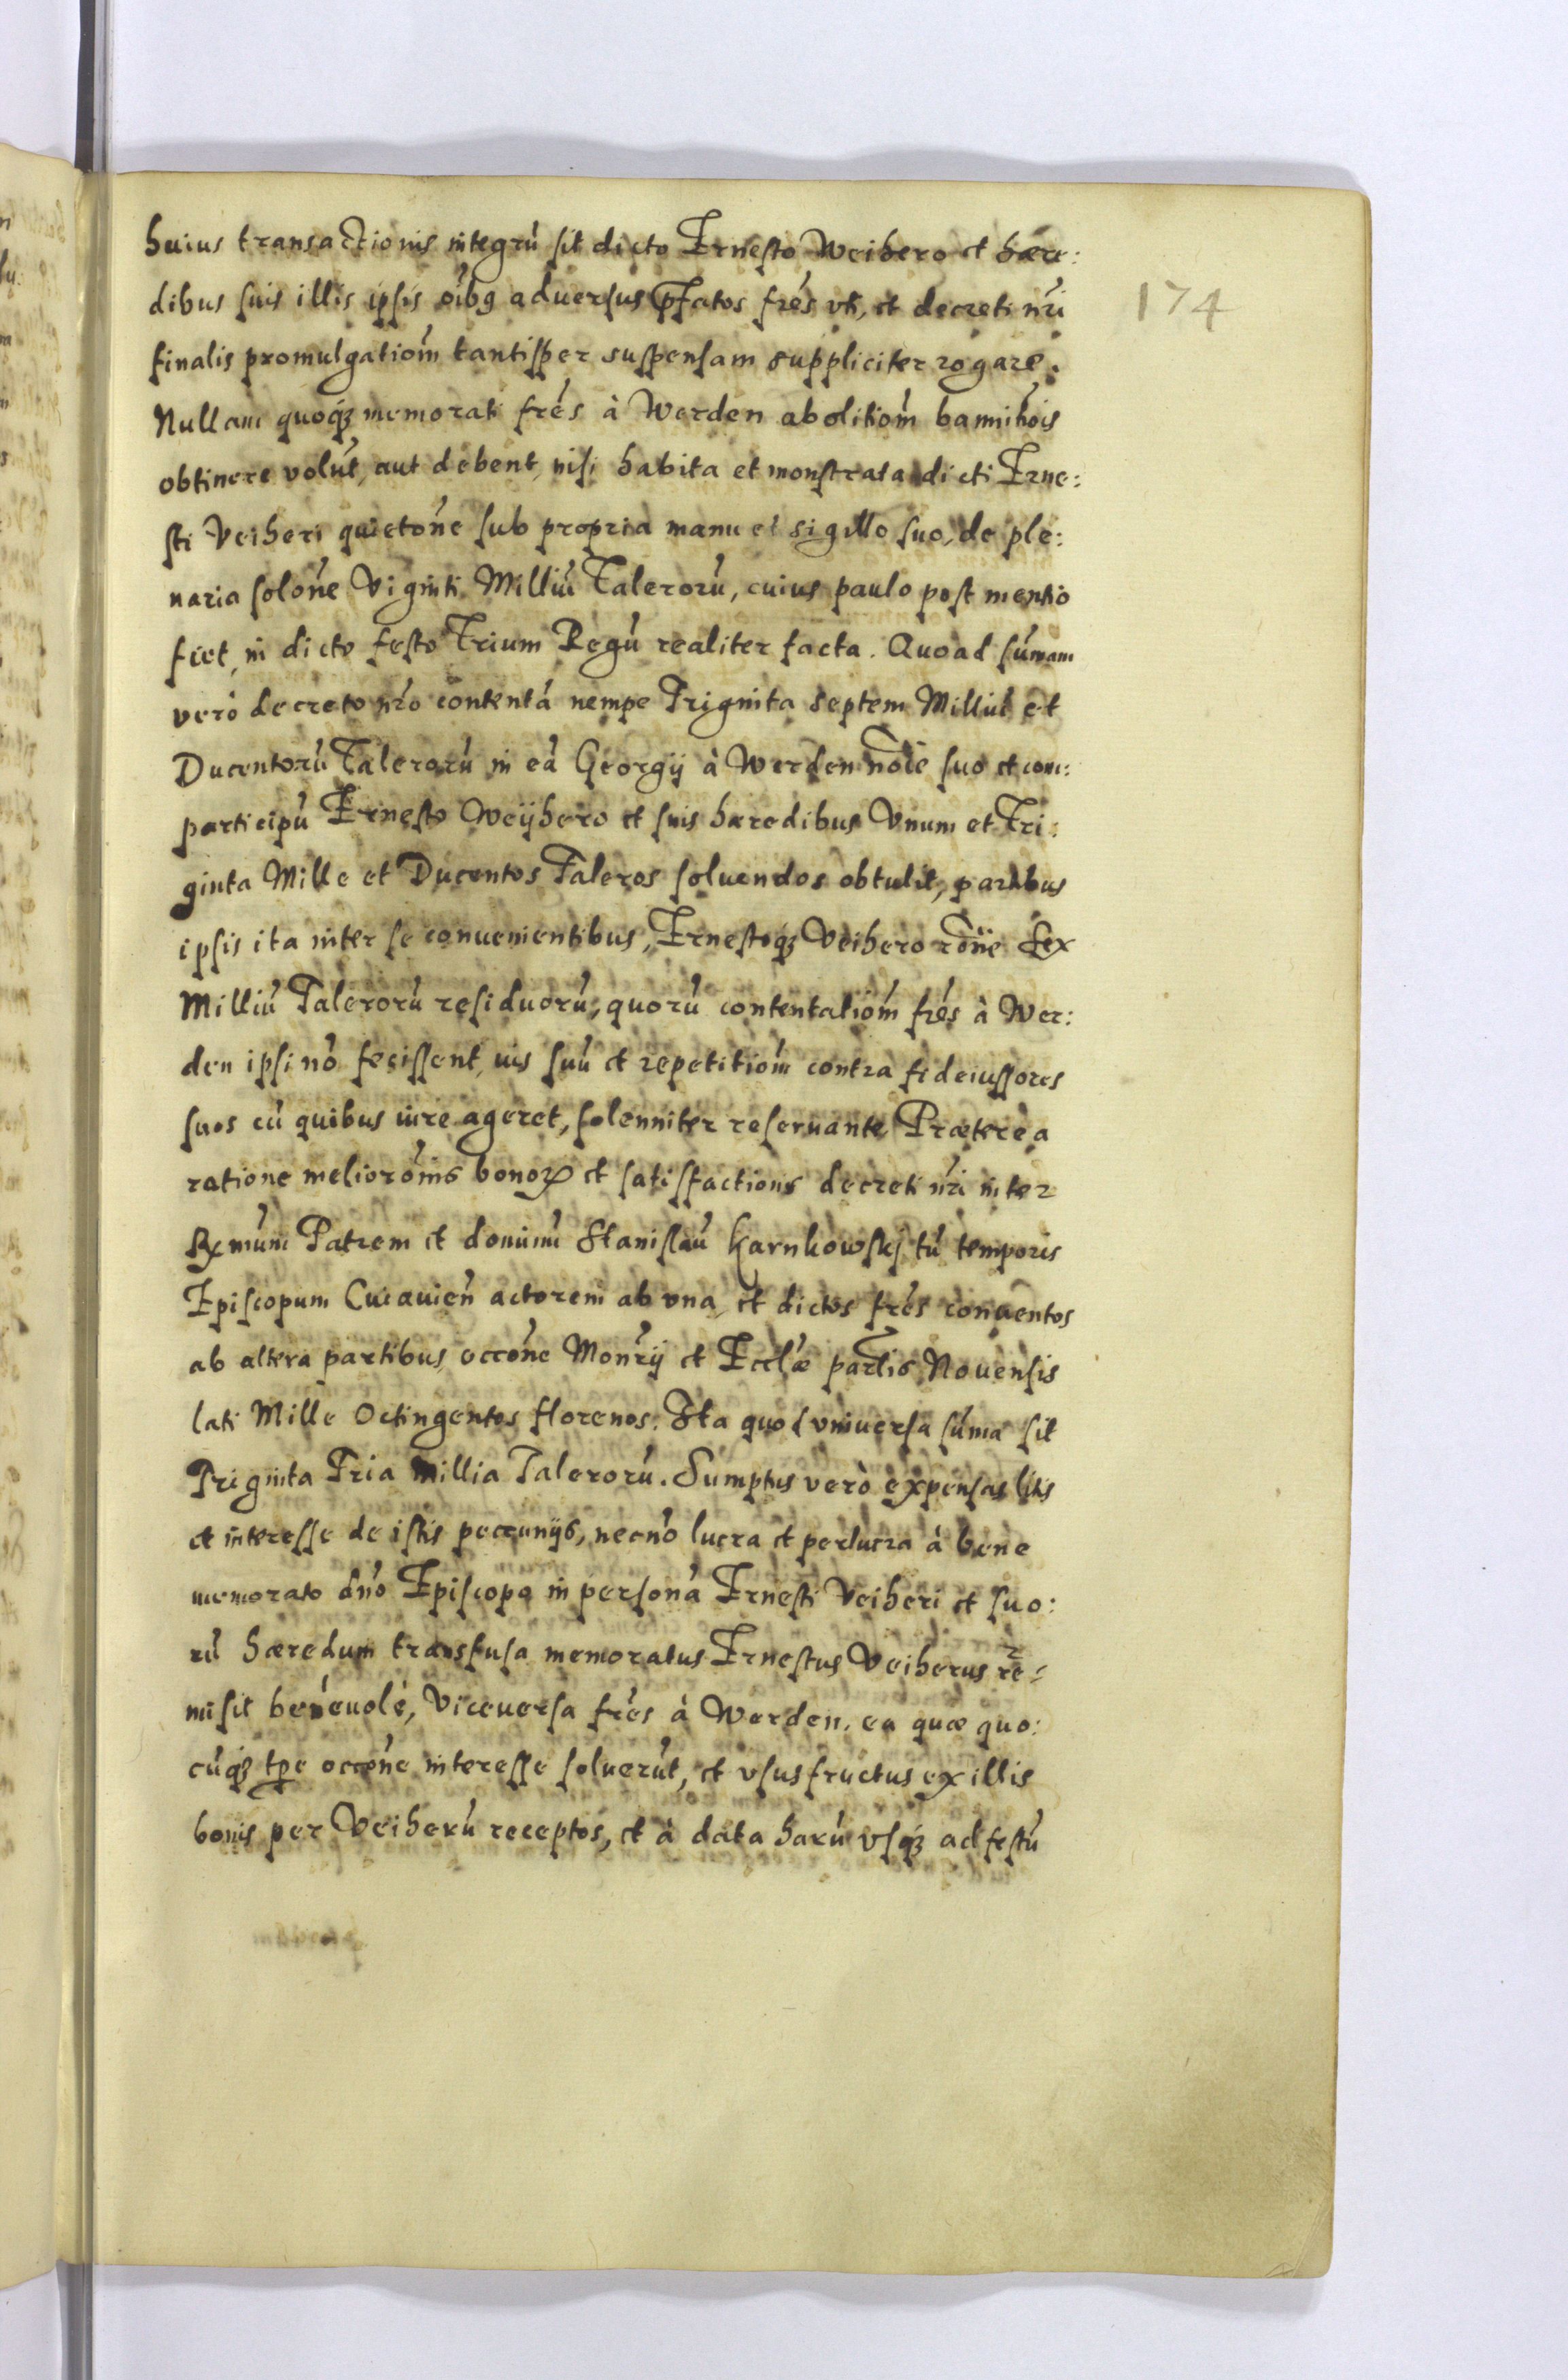 huius transactionis integrũ sit dicto Ernesto Weihero et hære:
dibus suis illis ipsis oĩbg aduersus p̃fatos frẽs vti, et decreti nr̃i
174
finalis promulgatiom̃ tantisper suspensam suppliciter rogare.
Nullam quoqꝫ memorati frẽs à Werden abolitiom̃ bannitõis
obtinere volũt, aut debent, nisi habita et monstrata dicti Erne:
sti Veiheri quietõne sub propria manu et sigillo suo, de ple:
naria solõne Viginti Milliũ Talerorũ, cuius paulo post mentio
fiet, in dicto festo Trium Regũ realiter facta. Quoad sũmam
verò decreto nr̃o contentã nempe Triginta septem Milliũ et
Ducentorũ Talerorũ in eã Georgij à Werden noĩe suo et con:
participũ Ernesto Weijhero et suis hæredibus Vnum et Tri:
ginta Mille et Ducentos Taleros soluendos obtulit, partibus
ipsis ita inter se conuenientibus, Ernestoqꝫ Veihero rõne Sex
Milliũ Talerorũ residuorũ, quorũ contentatiom̃ frẽs à Wer:
den ipsi nõ fecissent, ius suũ et repetitiom̃ contra fideiussores
suos cũ quibus iure ageret, solenniter reseruante Præterea
ratione meliorõnis bonoꝝ et satisfactionis decreti nr̃i inter
Rx̃mum Patrem et dominũ Stanislaũ Karnkowskj tũ temporis
Episcopum Cuiauieñ actorem ab vna, et dictos frẽs conuentos
ab altera partibus, occõne Monr̃ij et Eccl̃æ par̃lis Nouensis
lati Mille Octingentos florenos. Ita quod vniuersa sũma sit
Triginta Tria Millia Talerorũ. Sumptus verò expensas litis
et interesse de istis peccunijs, necnõ lucra et perlucra à bene
memorato dño Episcopo in personã Ernesti Veiheri et suo:
rũ hæredum transfusa memoratus Ernestus Veiherus re:
misit beneuolè, Viceuersa frẽs à Werden. ea quæ quo:
cũqꝫ tp̃e occõne interesse soluerũt, et vsusfructus ex illis
bonis per Veiherũ receptos, et à data harũ vsqꝫ ad festũ